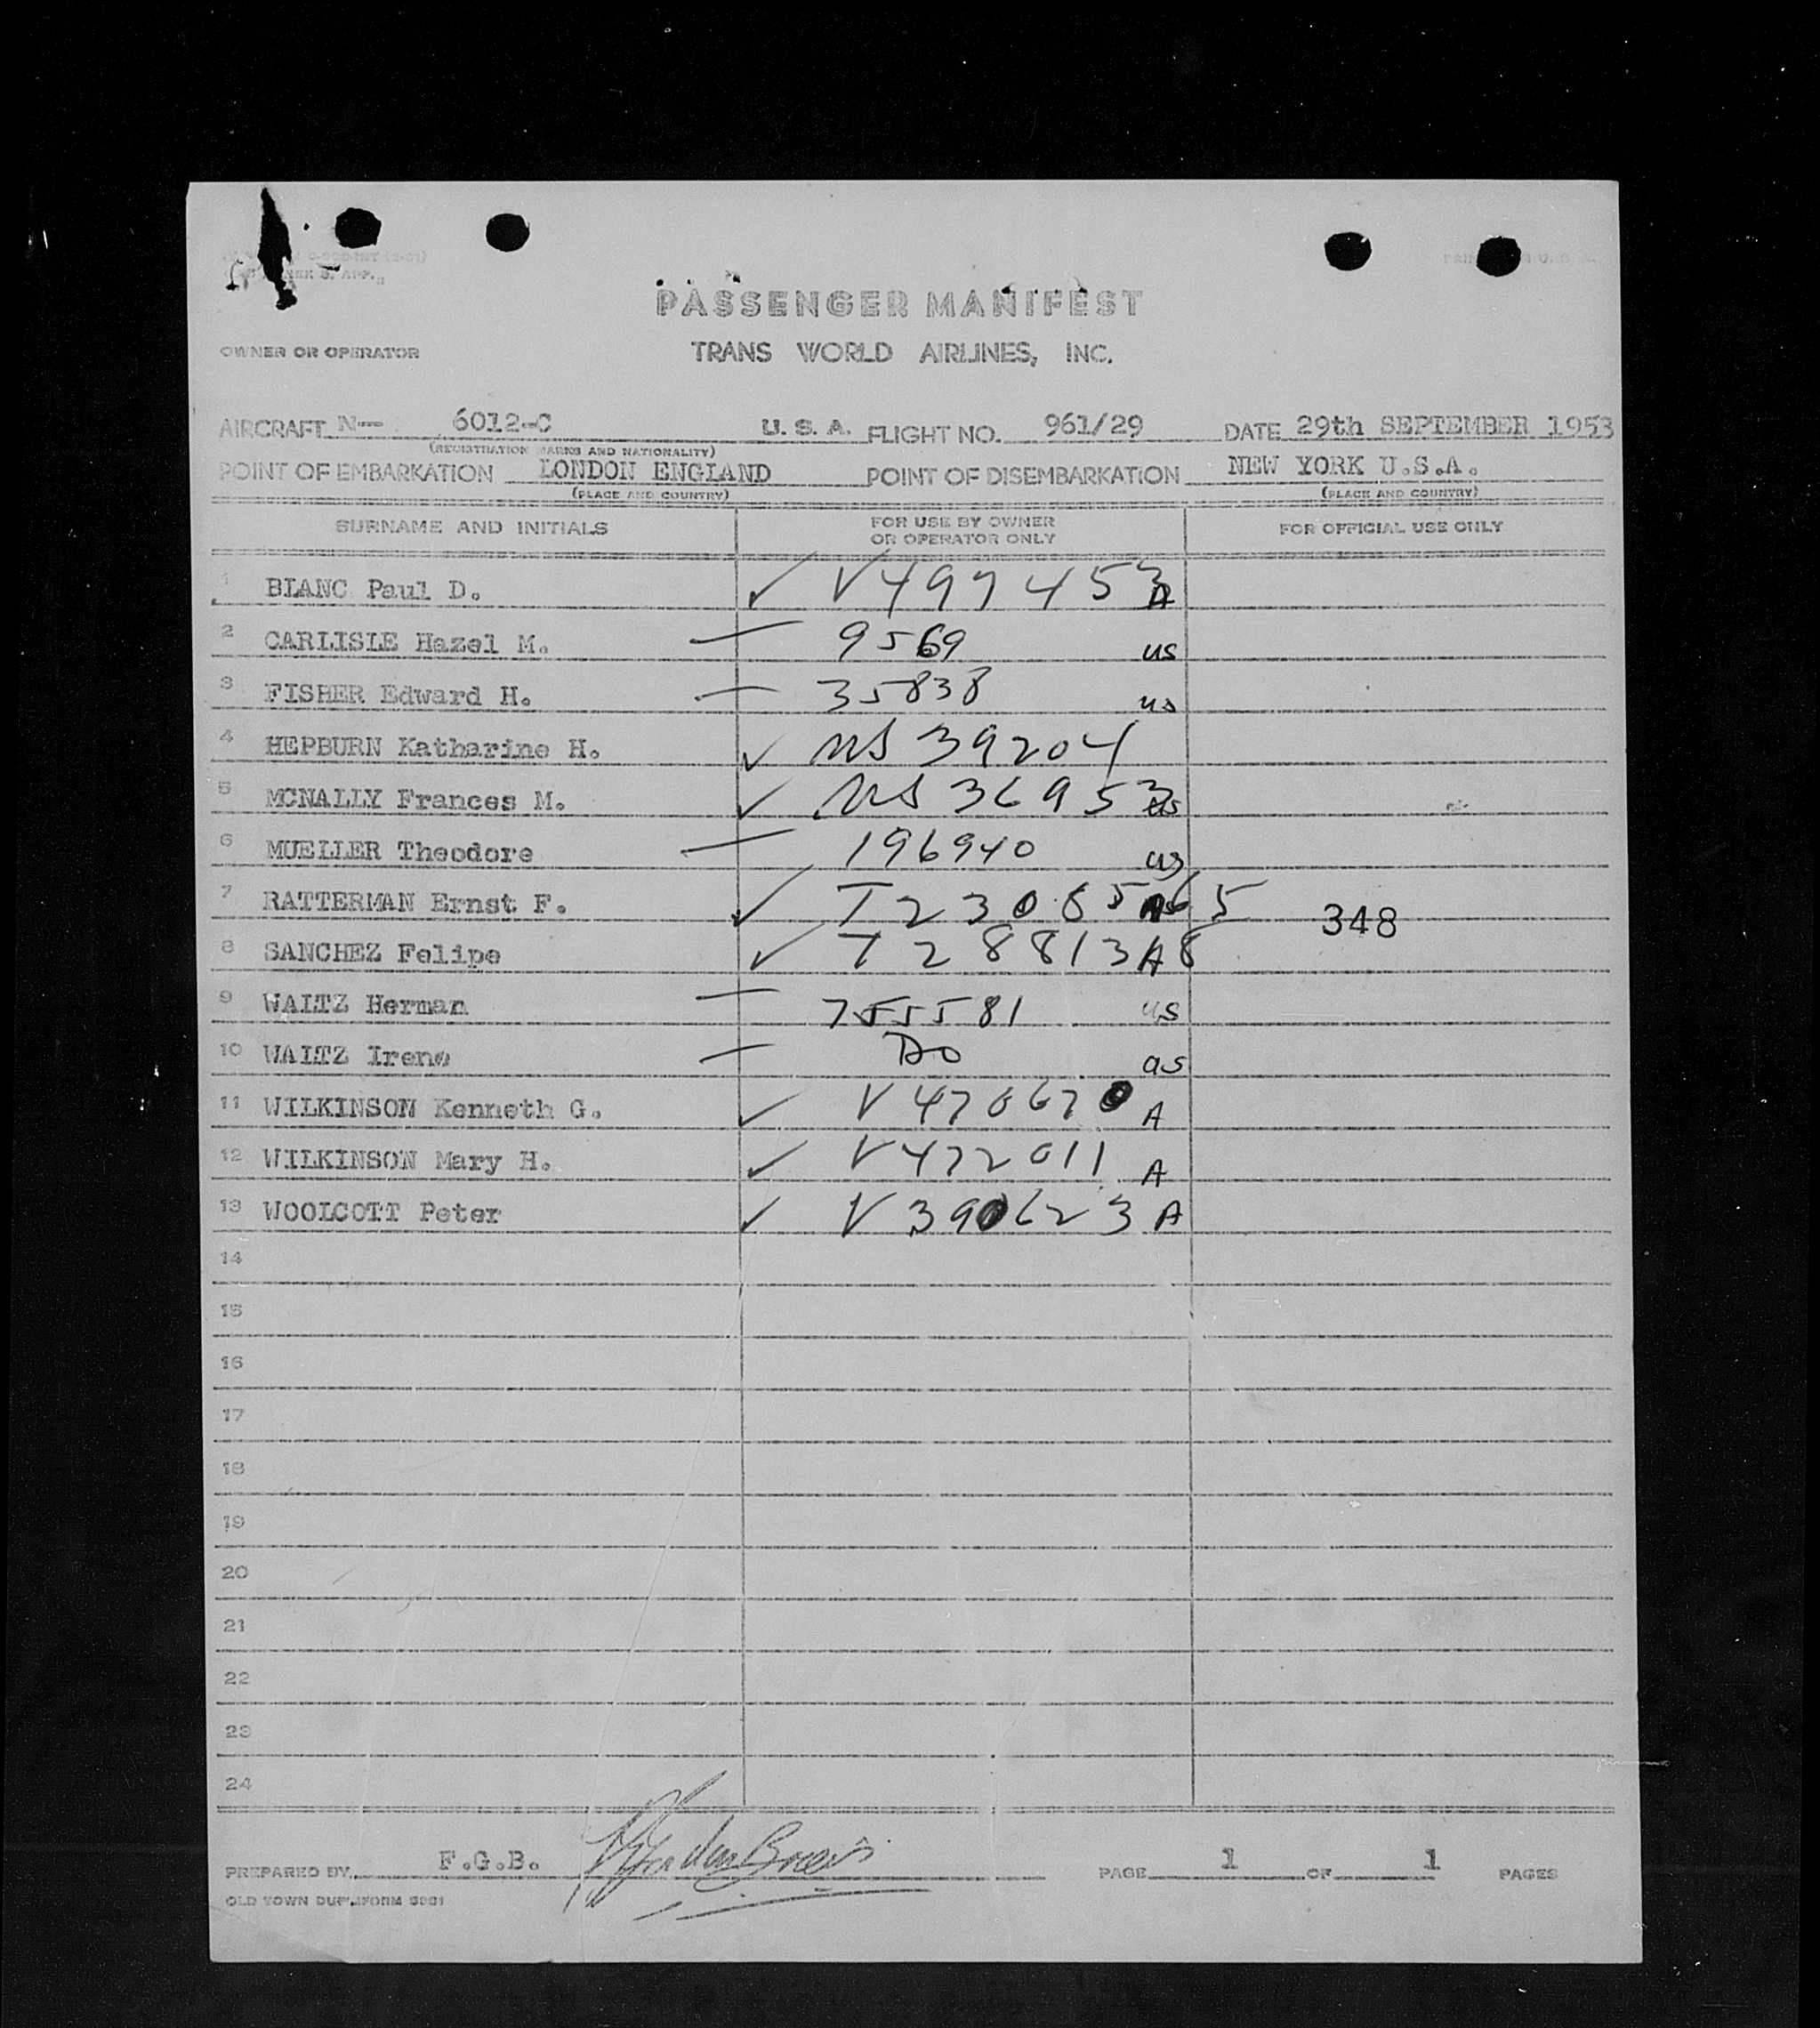 PASSENGER MANIFEST
OWNER OR OPERATOR TRANS WORLD AIRLINES, INC.
AIRCRAFT N- 6012-C U. S. A. FLIGHT NO. 961/29 DATE 29th SEPTEMBER 1953
(REGISTRATION MARKS AND NATIONALITY)
POINT OF EMBARKATION LONDON ENGLAND POINT OF DISEMBARKATION NEW YORK U.S.A.
(PLACE AND COUNTRY) (PLACE AND COUNTRY)
SURNAME AND INITIALS FOR USE BY OWNER OR OPERATOR ONLY FOR OFFICIAL USE ONLY
1 BLANC Paul D. ✓ V497453 A
2 CARLISLE Hazel M. — 9569 us
3 FISHER Edward H. — 35838 us
4 HEPBURN Katharine H. ✓ NS 39204
5 MCNALLY Frances M. ✓ NS 36953 us
6 MUELLER Theodore — 196940 us
7 RATTERMAN Ernst F. ✓ 348
8 SANCHEZ Felipe ✓ T 288813 A 8
9 WALTZ Herman — 755581 us
10 WALTZ Irene — Do us
11 WILKINSON Kenneth G. ✓ V470670 A
12 WILKINSON Mary H. ✓ V472011 A
13 WOOLCOTT Peter ✓ V390623 A
14
15
16
17
18
19
20
21
22
23
24
PREPARED BY F.G.B. PAGE 1 OF 1 PAGES
OLD TOWN DUP. FORM